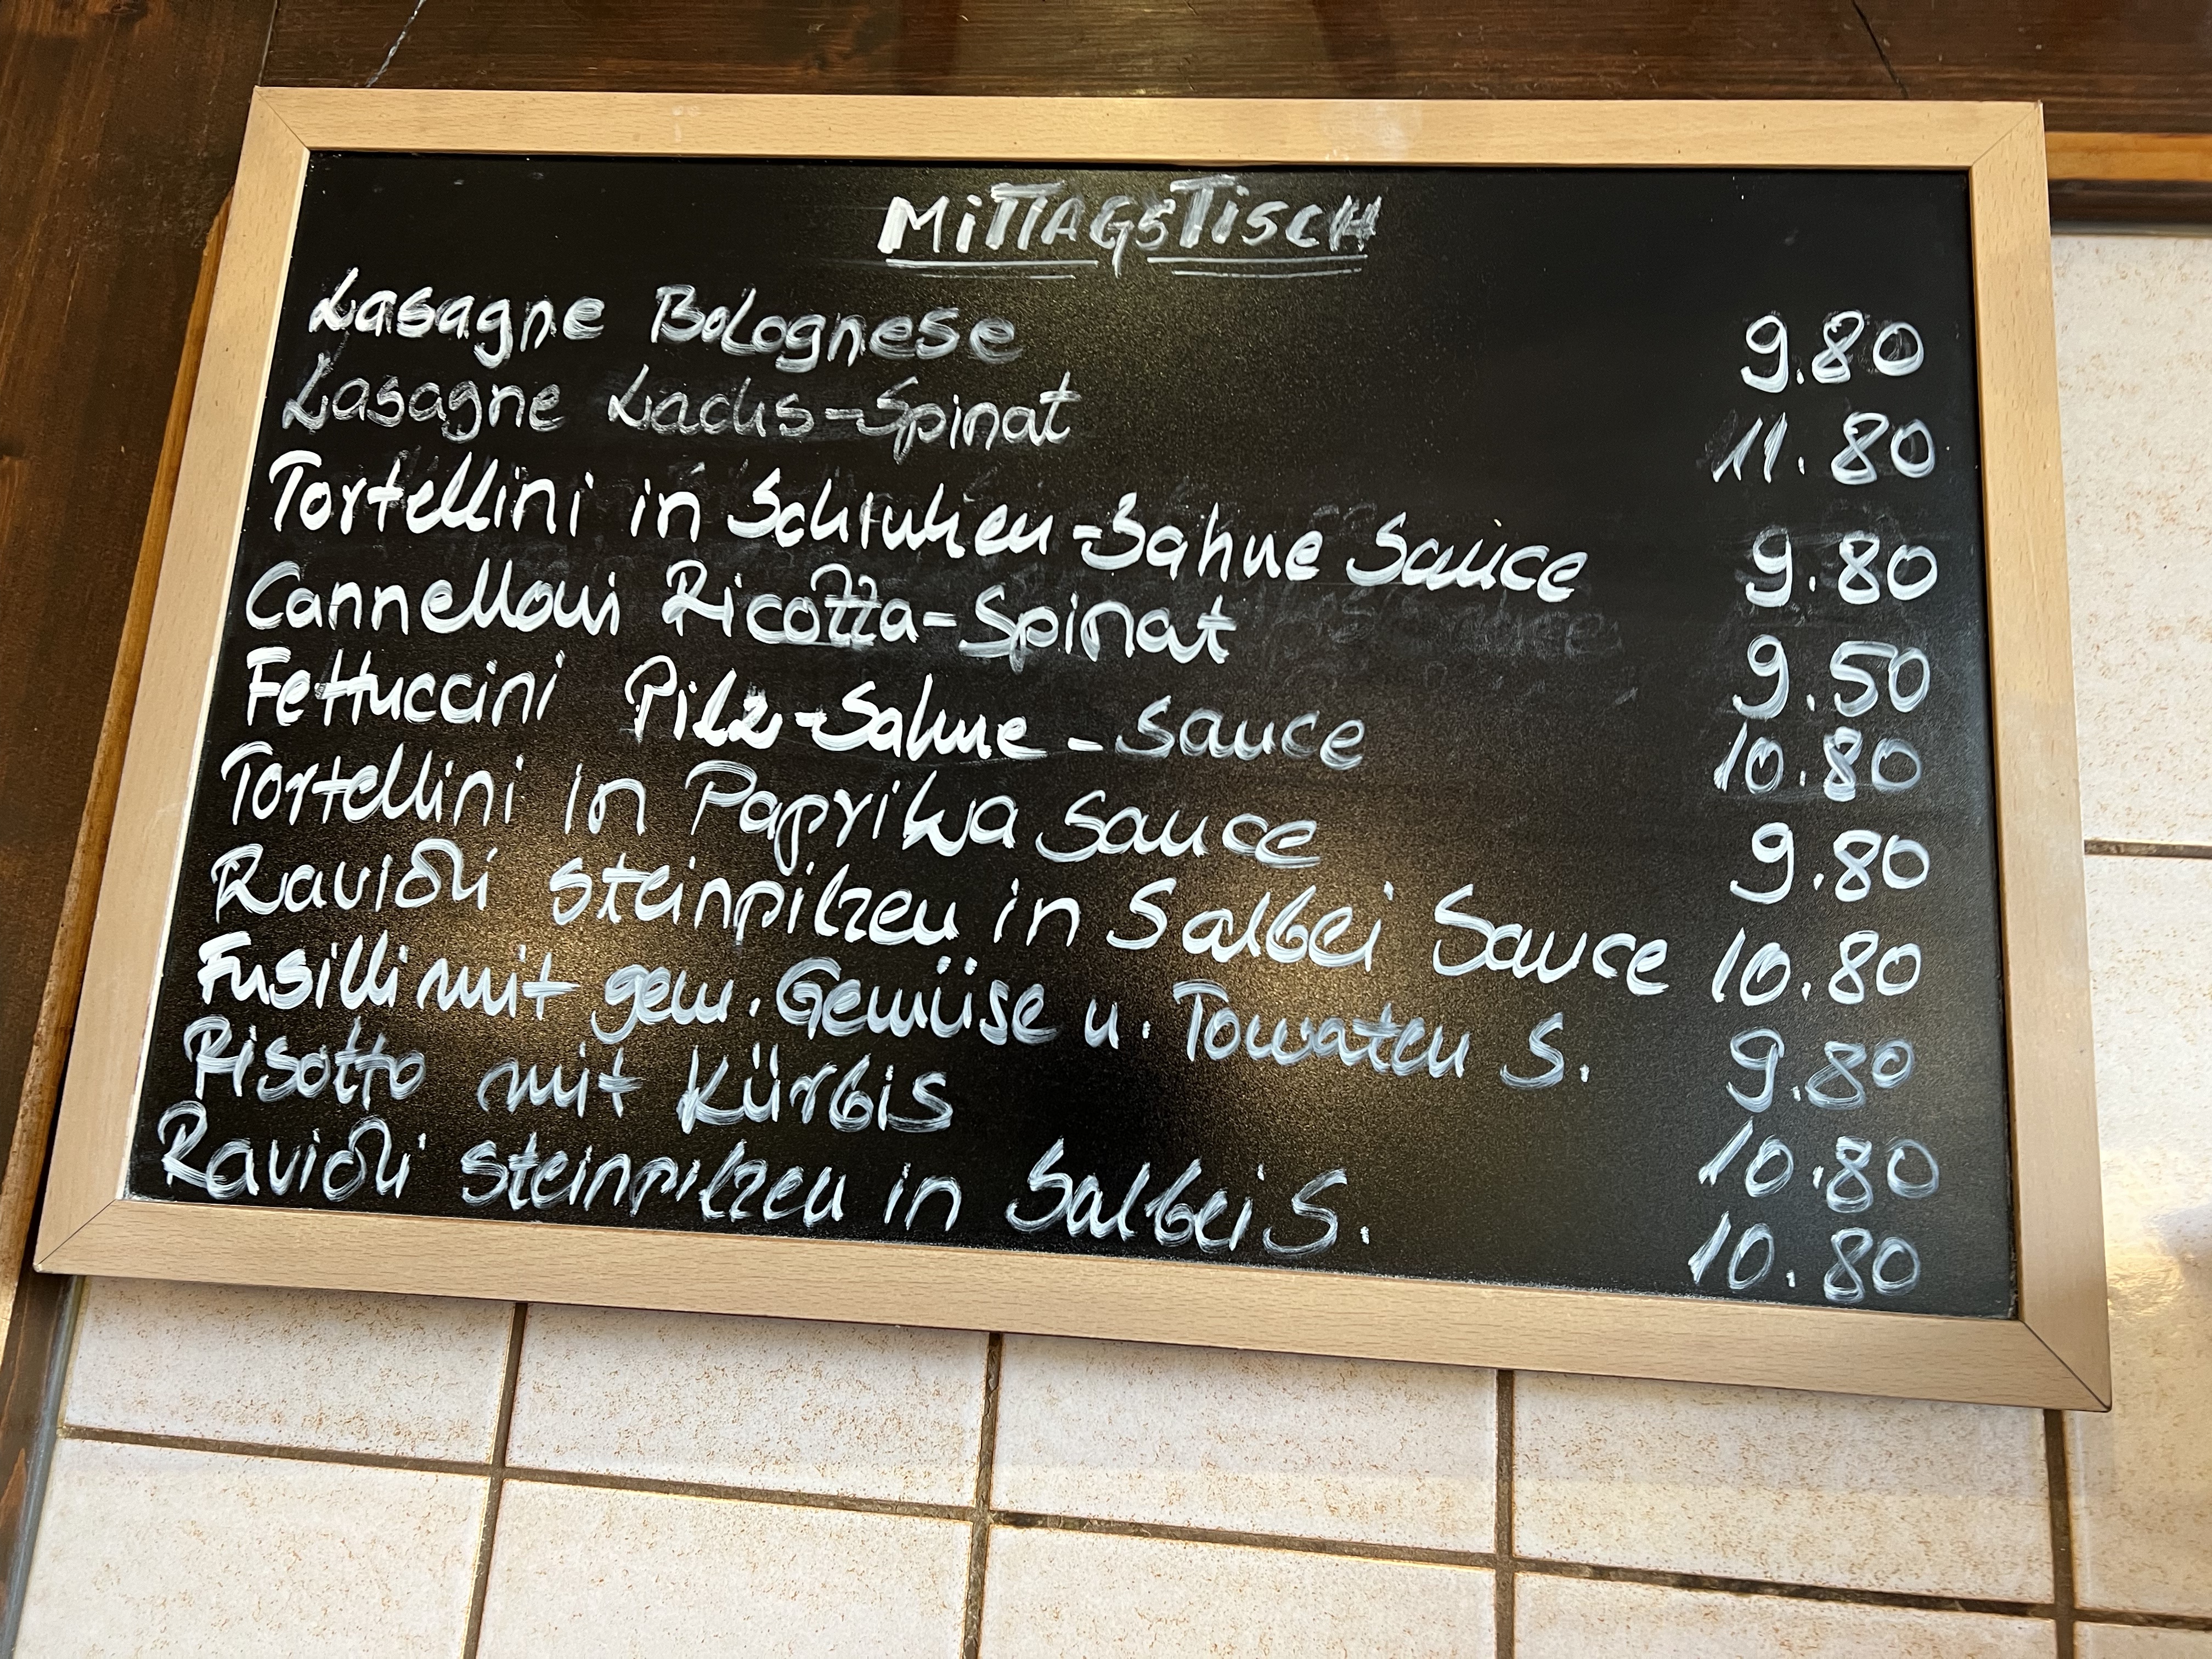 MITTAGSTISCH
Lasagne Bolognese 9.80
Lasagne Lachs-Spinat 11.80
Tortellini in Schinken-Sahne Sauce 9.80
Cannelloni Ricotta-Spinat 9.50
Fettuccini Pilz-Sahne-Sauce 10.80
Tortellini in Paprika Sauce 9.80
Ravioli Steinpilzen in Salbei Sauce 10.80
Fusilli mit gem. Gemüse u. Tomaten S. 9.80
Risotto mit Kürbis 10.80
Ravioli Steinpilzen in Salbei S. 10.80